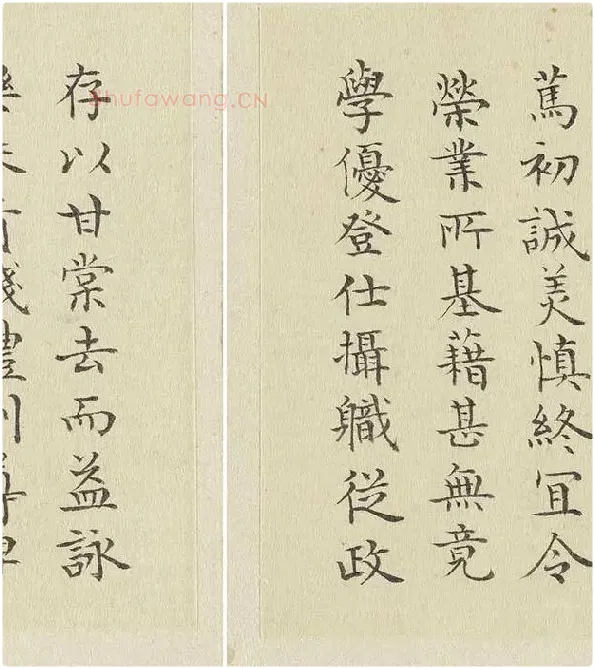 篤初誠美慎終宜令
榮業所基藉甚無竟
學優登仕攝職從政
存以甘棠去而益詠
Shufawang.CN